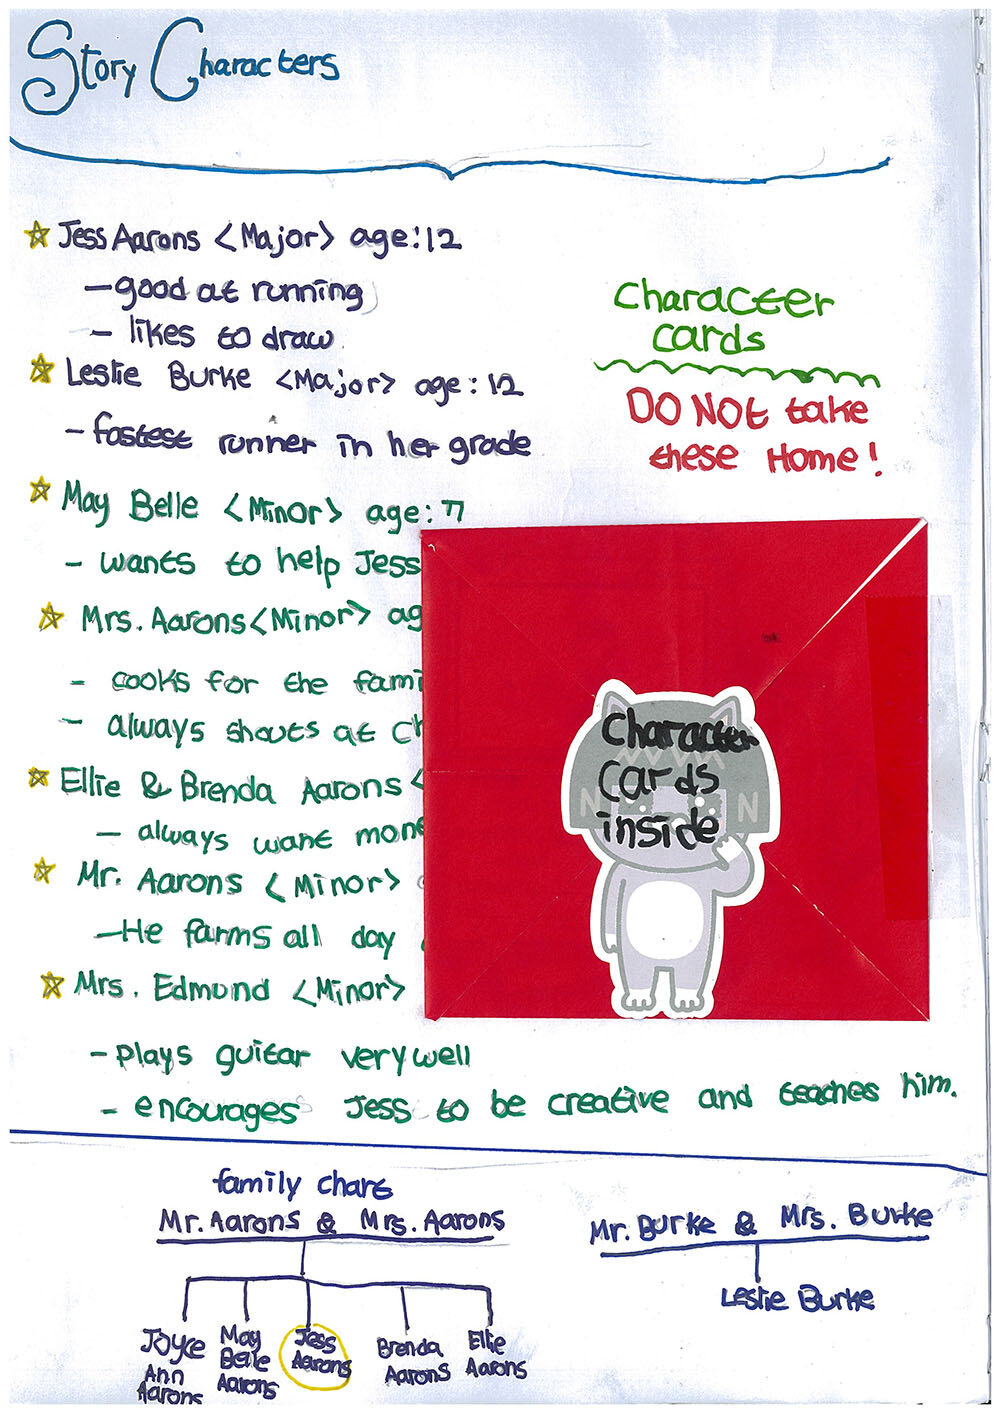 Story Characters
Jess Aarons <Major> age:12
- good at running
- likes to draw.
Leslie Burke <Major> age:12
- fastest runner in her grade
May Belle <Minor> age:7
- wants to help Jess
Mrs. Aarons <Minor> ag
- cooks for the fami
- always shouts at Ch
Ellie & Brenda Aarons <
- always want mone
Mr. Aarons <Minor>
- He farms all day
Mrs. Edmund <Minor>
- plays guitar very well
- encourages Jess to be creative and teaches him.
Character
cards
DO NOt take
these Home!
Character
cards
inside
N N
family chart
Mr. Aarons & Mrs. Aarons
Joyce Ann Aarons
May Belle Aarons
Jess Aarons
Brenda Aarons
Ellie Aarons
Mr. Burke & Mrs. Burke
Leslie Burke